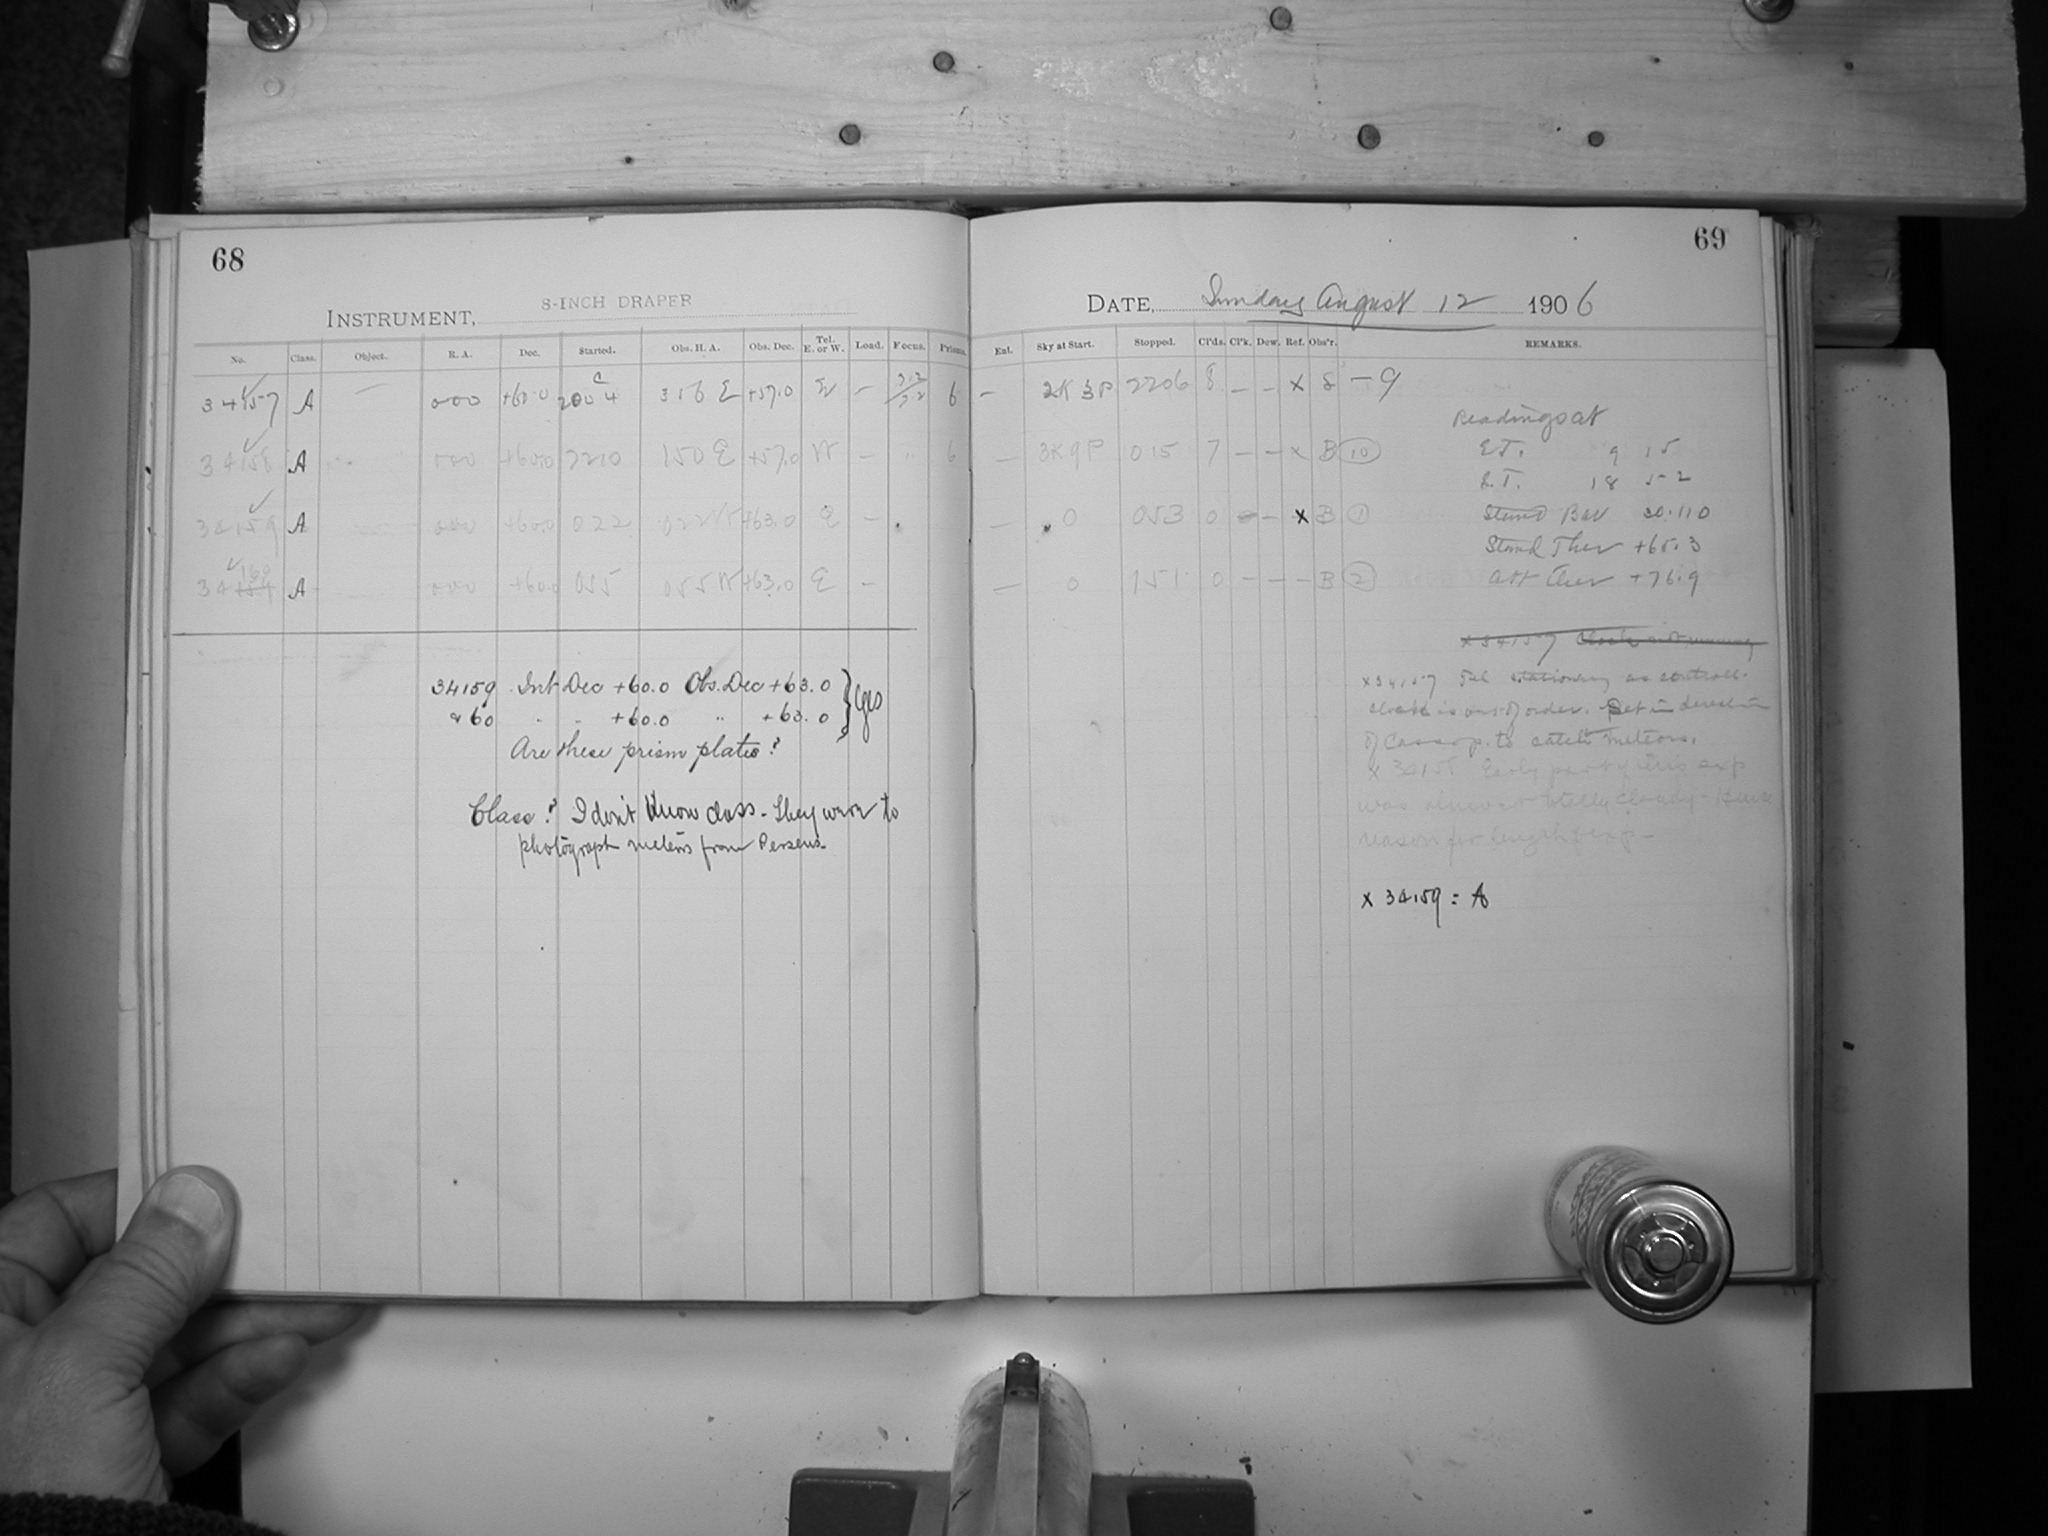 68
8-INCH DRAPER
INSTRUMENT,
No. Class. Object. R. A. Dec. Started. Obs. H. A. Obs. Dec. Tel. E. or W. Load. Focus. Prisms.
34157 A — 000 +60.0 2004 316 E +57.0 — 6
34158 A 000 +60.0 2210 150 E +57.0 W — 6
34159 A 000 +60.0 022 022 W +63.0 E —
34160 A 000 +60.0 055 055 W +63.0 E —
34159 Int Dec +60.0 Obs. Dec +63.0 } Yes
& 60 " " +60.0 " +63.0
Are these prism plates?
Class? I don't know class. They were to
photograph meteors from Perseus
69
DATE, Sunday August 12 1906
Ent. Sky at Start. Stopped. Cl'ds. Cl'k. Dew. Ref. Obs'r. REMARKS.
— 2K 3P 2206 8 — — x S — 9
— 3K9P 015 7 — — x B 10
— 0 053 0 — — x B 1
— 0 151 0 — — — B 2
Readings at
E.T. 9 15
S.T. 18 52
Stand Bar 30.110
Stand Ther +65.3
Att Ther +76.9
x 34157 Clock not running
x 34157 Tel stationary as controll.
clock is out of order. Set in direction
of Cassiop. to catch meteors.
x 34158 Early part of this exp
was almost totally cloudy - Hence
reason for length of exp —
x 34159 = A